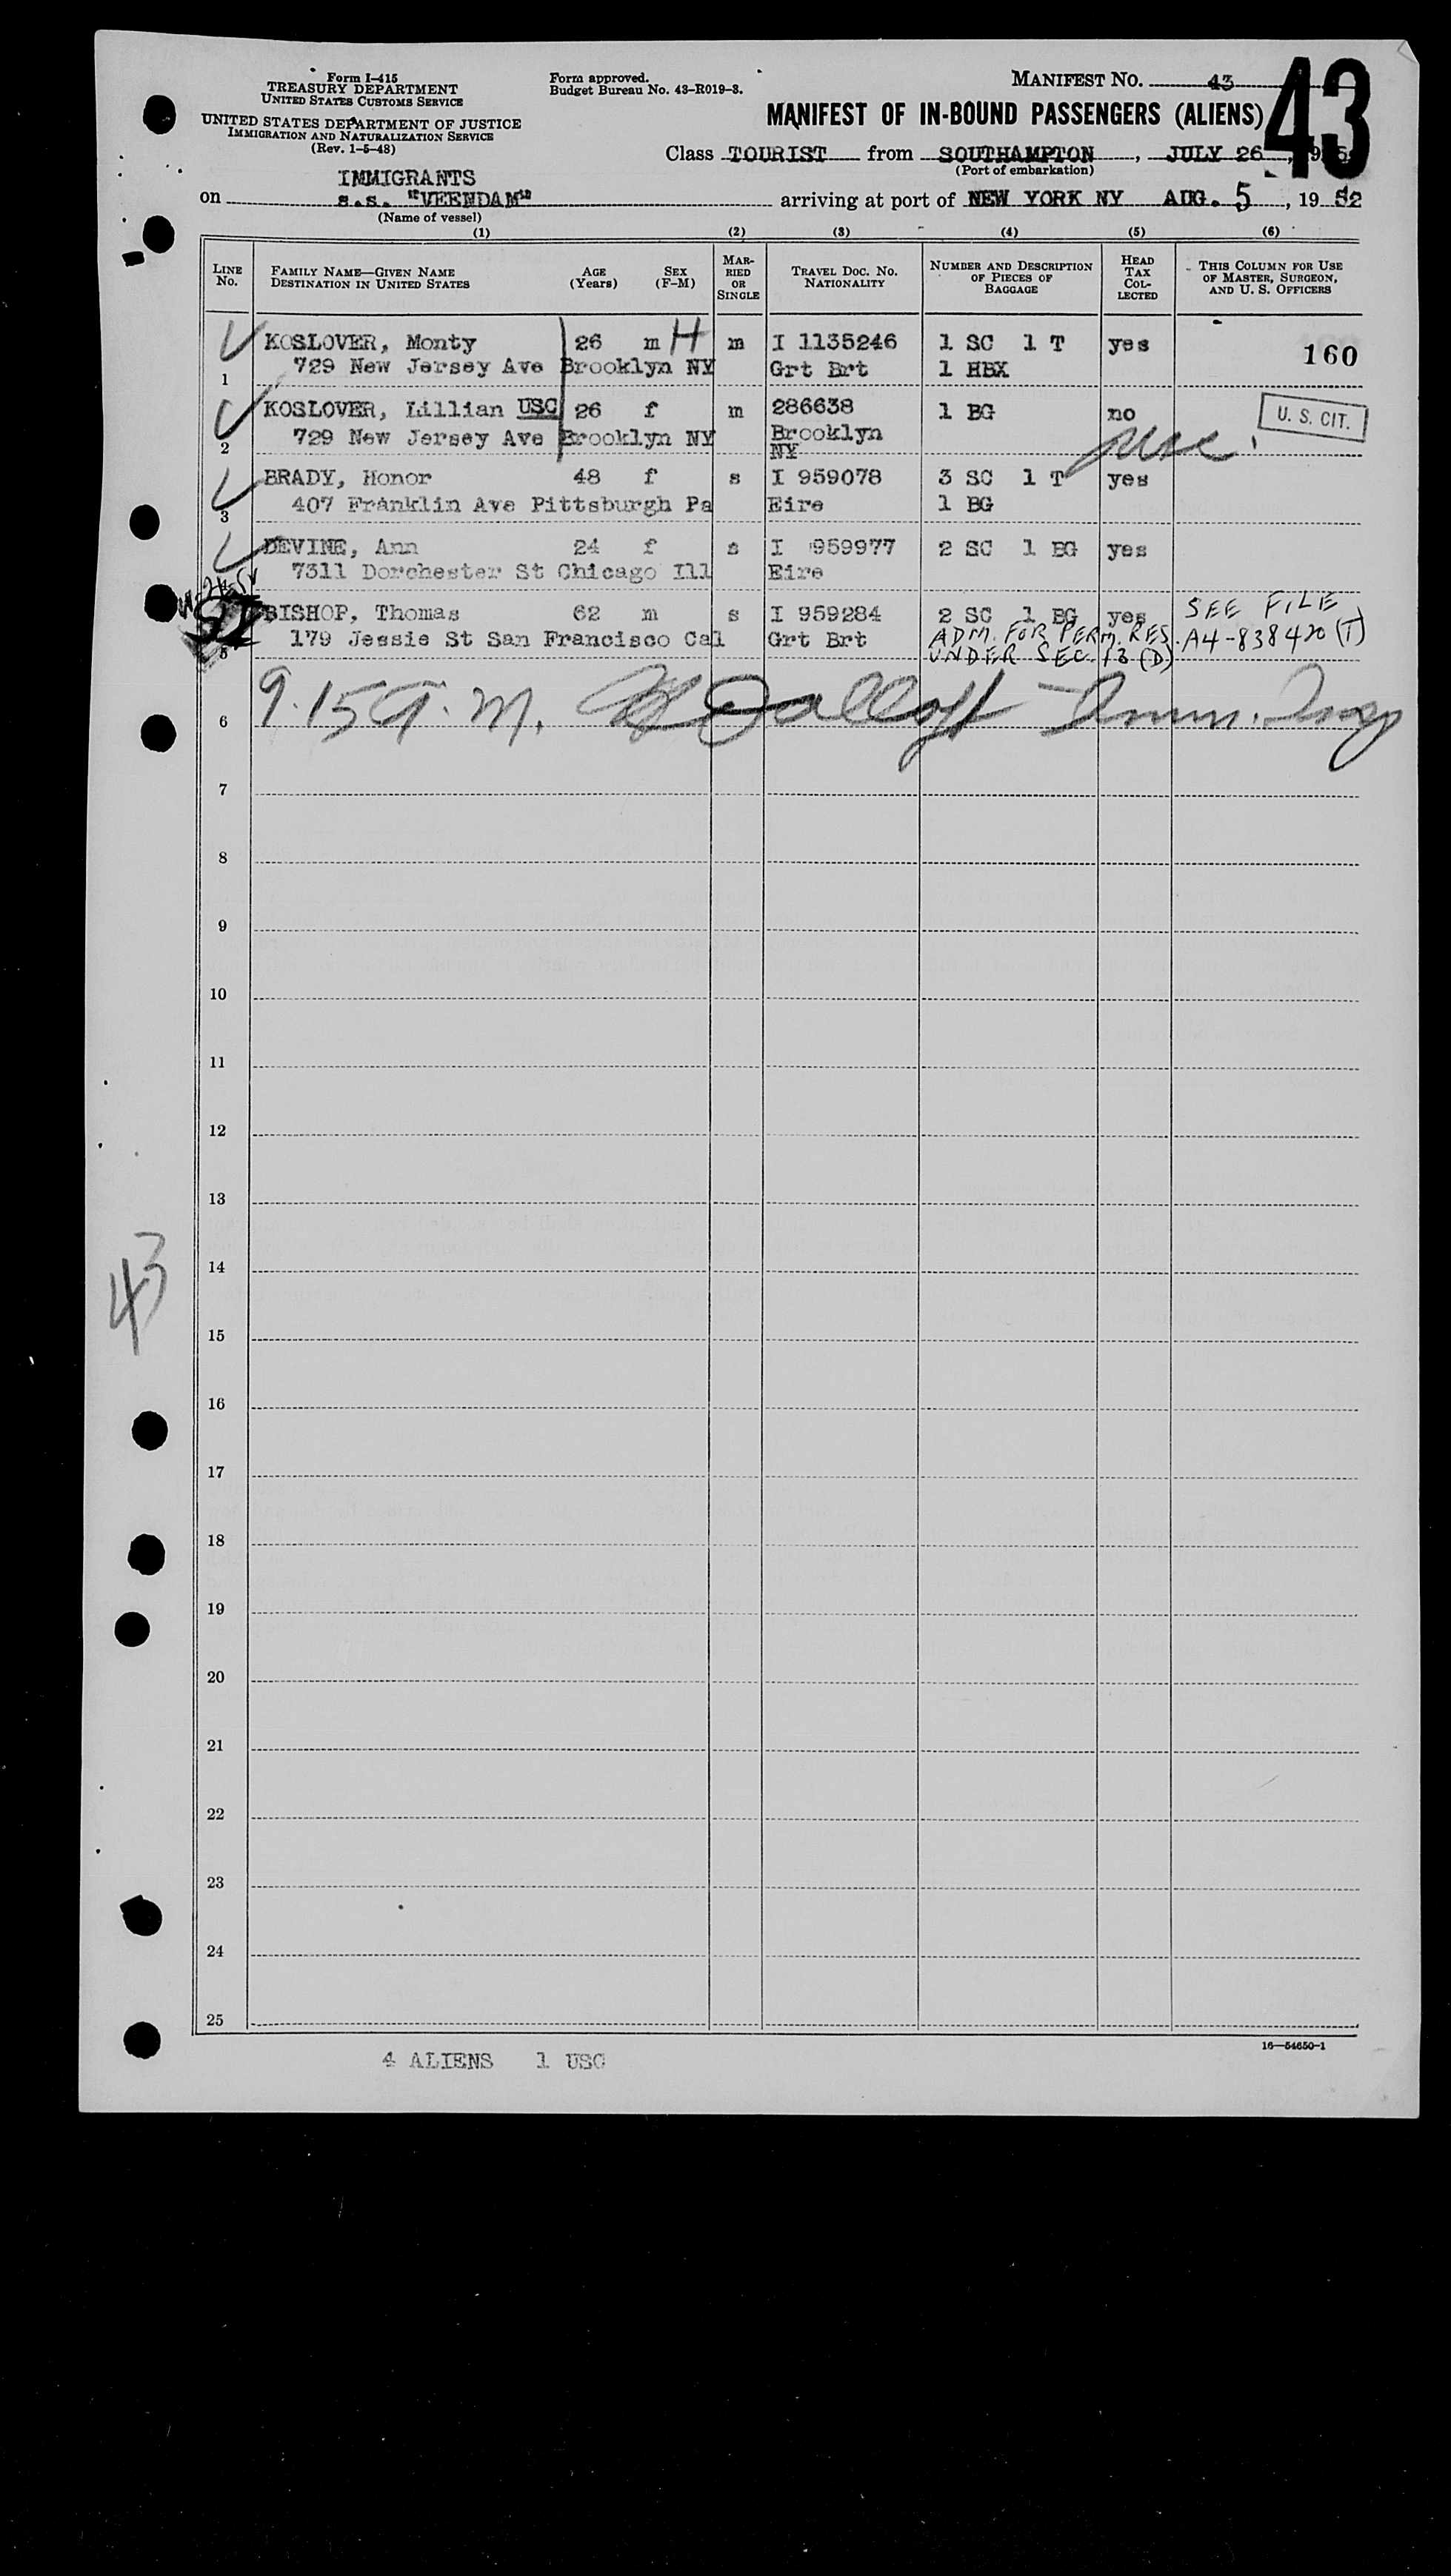 Form I-415
TREASURY DEPARTMENT
UNITED STATES CUSTOMS SERVICE
UNITED STATES DEPARTMENT OF JUSTICE
IMMIGRATION AND NATURALIZATION SERVICE
(Rev. 1-5-48)
Form approved.
Budget Bureau No. 43-R019-3.
MANIFEST NO. 43
43
MANIFEST OF IN-BOUND PASSENGERS (ALIENS)
Class TOURIST from SOUTHAMPTON, JULY 26, 19
(Port of embarkation)
IMMIGRANTS
on s.s. "VEENDAM" arriving at port of NEW YORK NY AUG. 5, 19 52
(Name of vessel)
(1) (2) (3) (4) (5) (6)
LINE No. FAMILY NAME—GIVEN NAME DESTINATION IN UNITED STATES AGE (Years) SEX (F-M) MARRIED OR SINGLE TRAVEL DOC. NO. NATIONALITY NUMBER AND DESCRIPTION OF PIECES OF BAGGAGE HEAD TAX COLLECTED THIS COLUMN FOR USE OF MASTER, SURGEON, AND U. S. OFFICERS
KOSLOVER, Monty 26 m H m I 1135246 1 SC 1 T yes 160
1 729 New Jersey Ave Brooklyn NY Grt Brt 1 HBX
KOSLOVER, Lillian USC 26 f m 286638 1 BG no U. S. CIT.
2 729 New Jersey Ave Brooklyn NY Brooklyn
NY
BRADY, Honor 48 f s I 959078 3 SC 1 T yes
3 407 Franklin Ave Pittsburgh Pa Eire 1 BG
DEVINE, Ann 24 f s I 959977 2 SC 1 BG yes
7311 Dorchester St Chicago Ill Eire
SI BISHOP, Thomas 62 m s I 959284 2 SC 1 BG yes SEE FILE
5 179 Jessie St San Francisco Cal Grt Brt ADM. FOR PERM. RES. A4-838420 (T)
UNDER SEC. 13 (D)
6 9.15 A.M. Imm. Insp
7
8
9
10
11
12
13
43
14
15
16
17
18
19
20
21
22
23
24
25
16—54650-1
4 ALIENS 1 USC